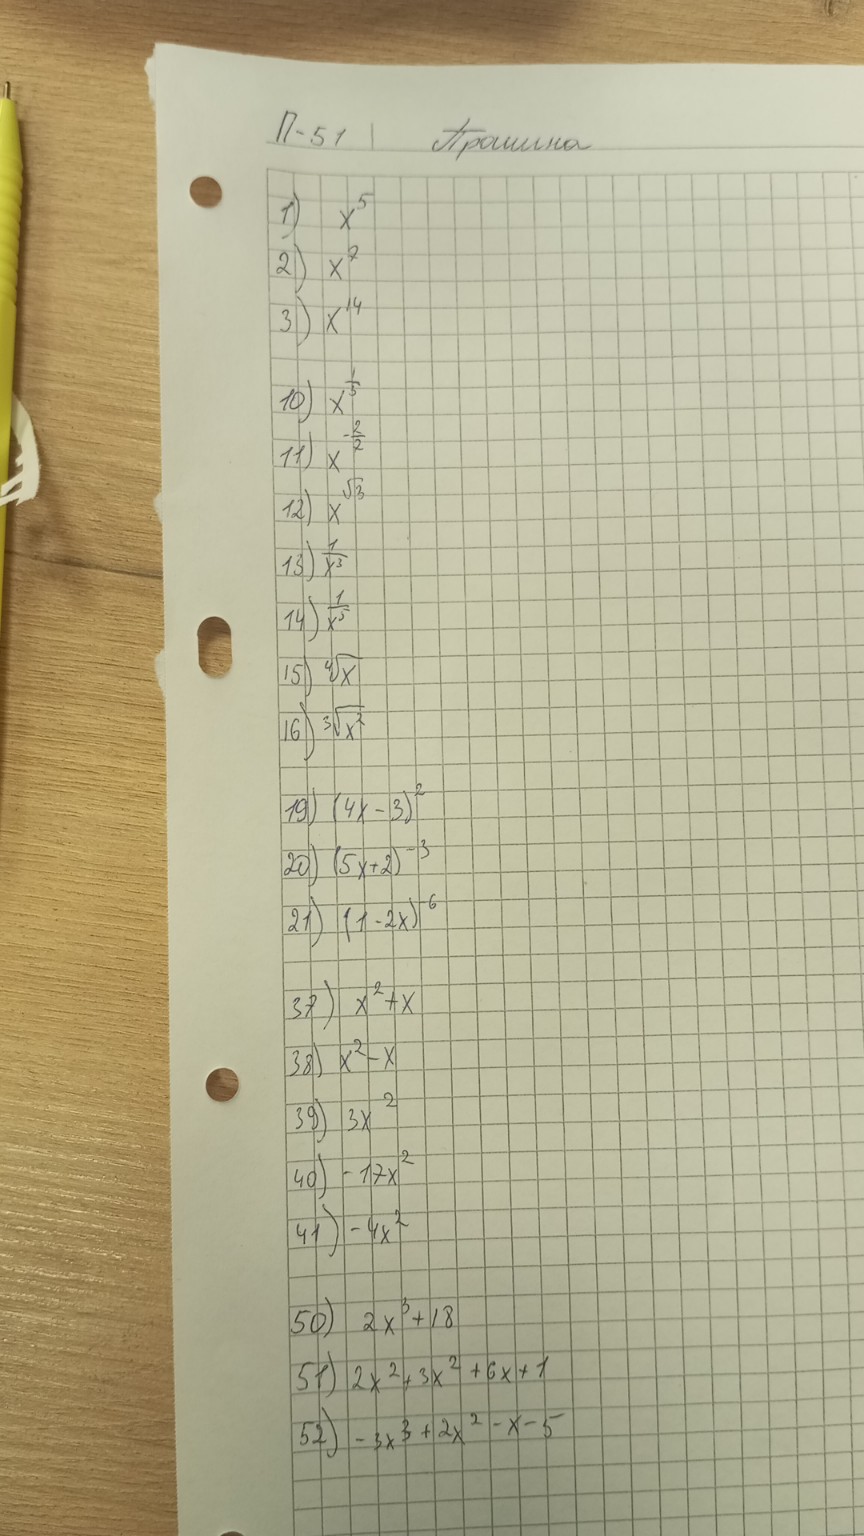 П-51 Прашина
1) x⁵
2) x⁷
3) x¹⁴
10) x^(1/5)
11) x^(-2/2)
12) x^(√3)
13) 1/x³
14) 1/x⁵
15) ⁴√x
16) ³√x²
19) (4x-3)²
20) (5x+2)⁻³
21) (1-2x)⁻⁶
37) x²+x
38) x²-x
39) 3x²
40) -17x²
41) -4x²
50) 2x³+18
51) 2x²+3x²+6x+1
52) -3x³+2x²-x-5